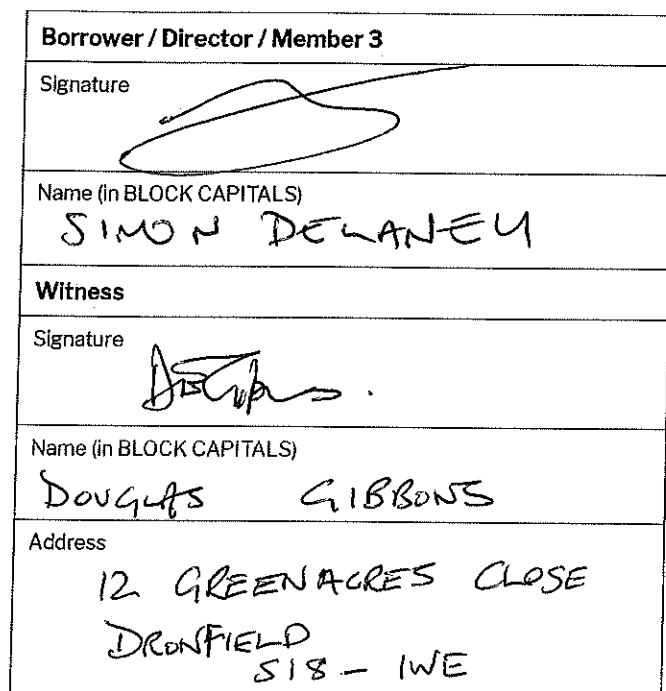 Borrower / Director / Member 3
Signature
Name (in BLOCK CAPITALS)
SIMON DELANEY
Witness
Signature
Name (in BLOCK CAPITALS)
DOUGLAS GIBBONS
Address
12 GREENACRES CLOSE
DRONFIELD
S18 - 1WE